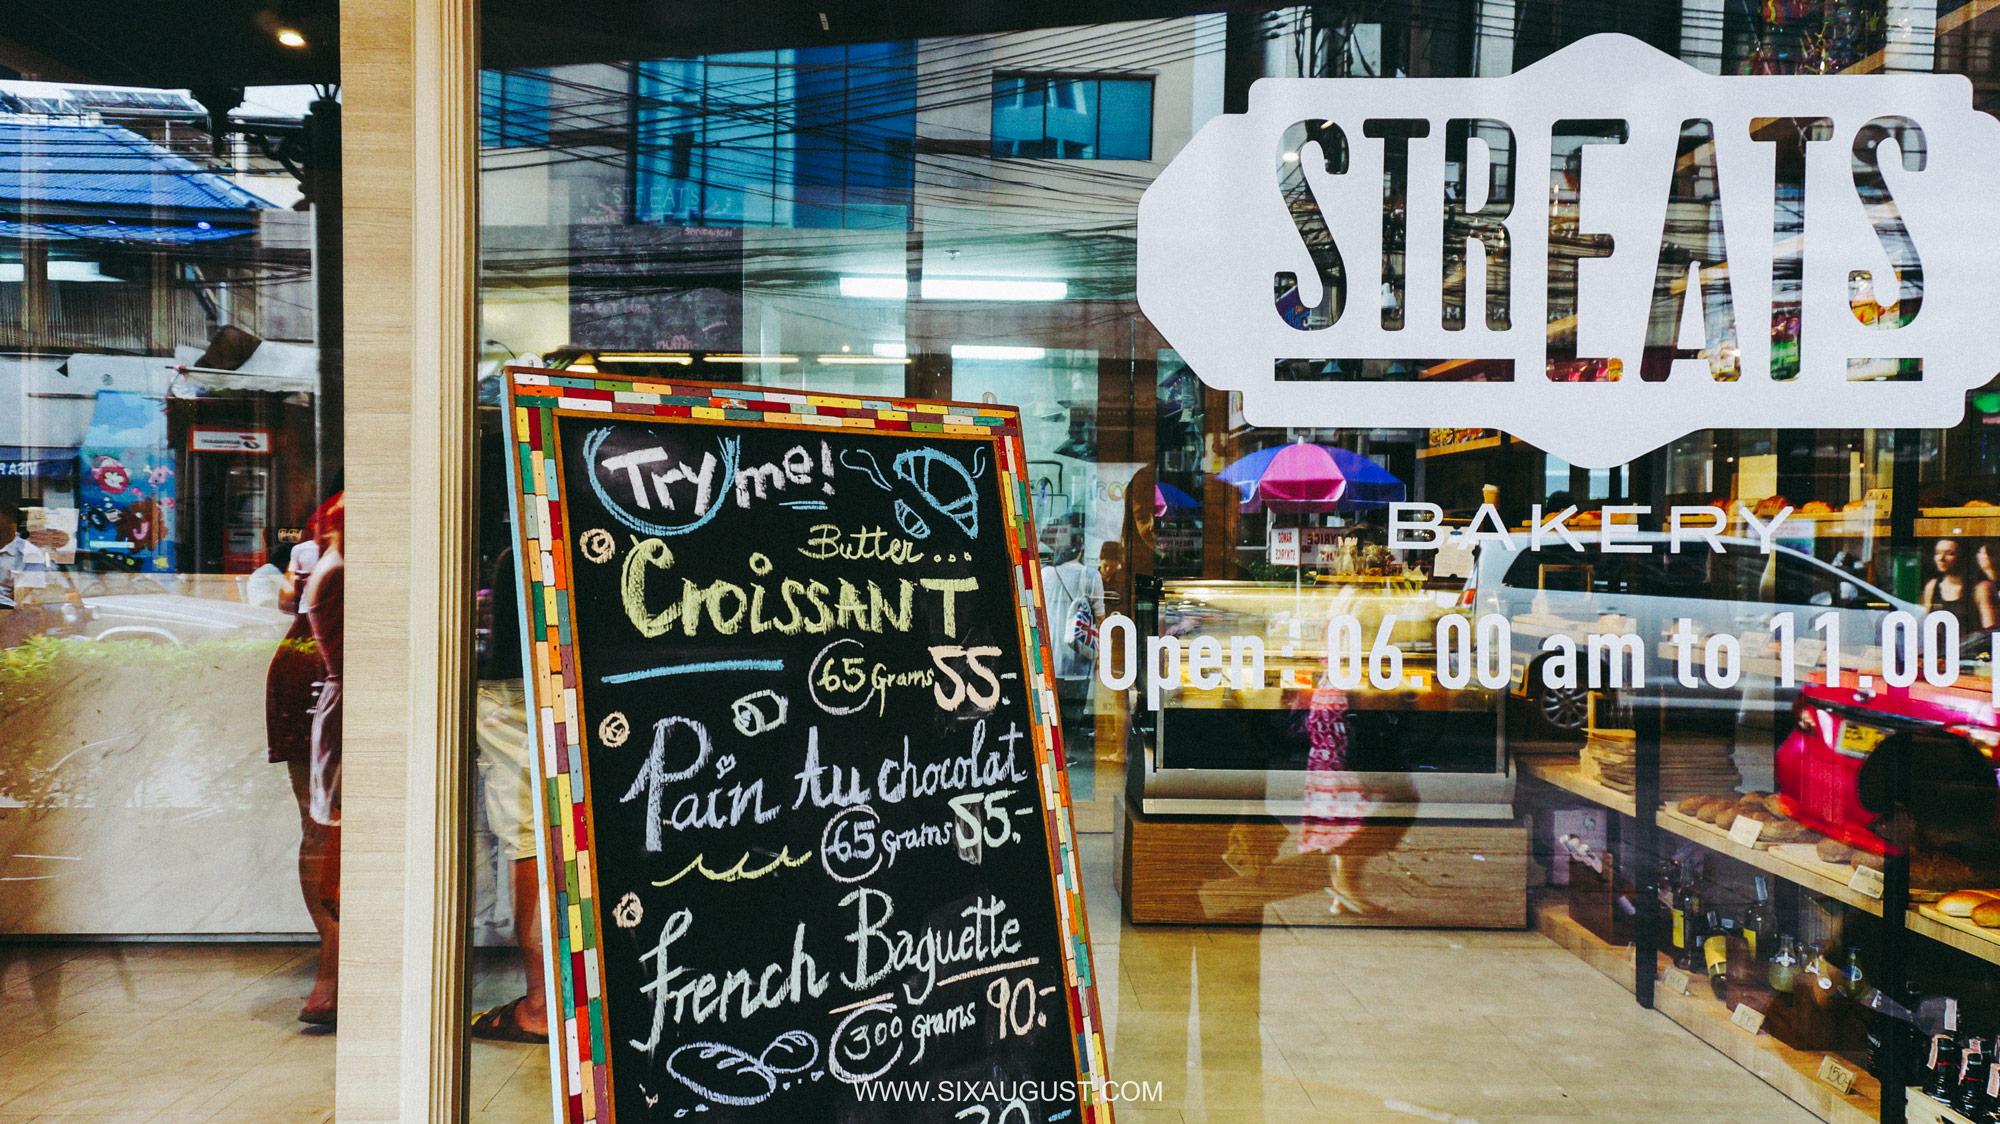 STREATS
BAKERY
Open: 06.00 am to 11.00 p
Try me!
Butter...
CroissANT
65 Grams 55.-
Pain Au chocolat
65 Grams 55.-
French Baguette
300 grams 90.-
STREATS
SANDWICH
VISA
150.-
WWW.SIXAUGUST.COM